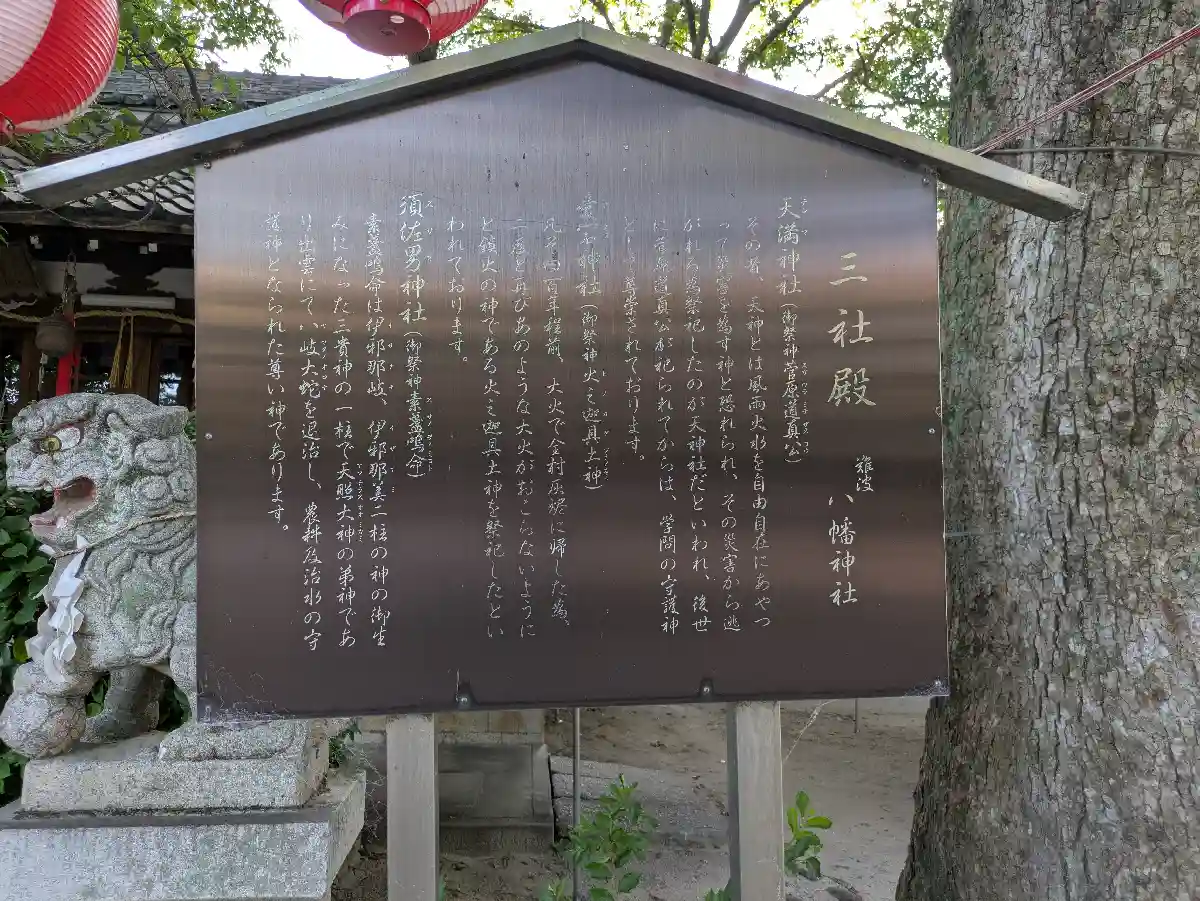 三社殿
難波 八幡神社
天満神社(御祭神菅原道真公)
その昔、天神とは風雨火水を自由自在にあやつ
って災害を為す神と恐れられ、その災害から逃
がれる為祭祀したのが天神社だといわれ、後世
に菅原道真公が祀られてからは、学問の守護神
として尊崇されております。
神社(御祭神火之迦具土神)
凡そ 百年程前、大火で全村灰燼に帰した為、
二度と再びあのような大火がおこらないように
と鎮火の神である火之迦具土神を祭祀したとい
われております。
須佐男神社(御祭神素盞嗚命)
素盞嗚命は伊邪那岐、伊邪那美二柱の神の御生
みになった三貴神の一柱で天照大神の弟神であ
り出雲にて八岐大蛇を退治し、農耕及治水の守
護神となられた尊い神であります。